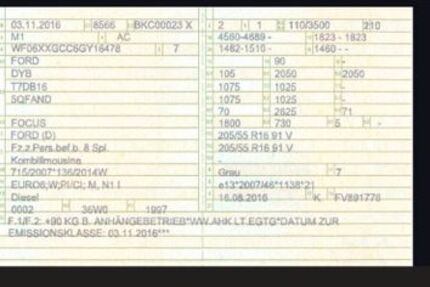 03.11.2016 8566 BKC00023 X 2 1 110/3500 210
M1 AC 4560-4689 - 1823 - 1823
WF06XXGCC6GY16478 7 1462-1510 - 1460 - -
FORD - 90 -
DYB 105 2050 2050
T7DB16 1075 1025 -
5QFAND 1075 1025 -
70 2625 71
FOCUS 1800 730 5 -
FORD (D) 205/55 R16 91 V
Fz.z.Pers.bef.b. 8 Spl. 205/55 R16 91 V
Kombilimousine -
715/2007*136/2014W Grau 7
EURO6;W;PI/CI; M, N1 I e13*2007/46*1138*21
Diesel 16.08.2016 K FV891776
0002 36W0 1997
F.1/F.2: +90 KG B. ANHÄNGEBETRIEB*WW.AHK LT.EGTG*DATUM ZUR
EMISSIONSKLASSE: 03.11.2016***